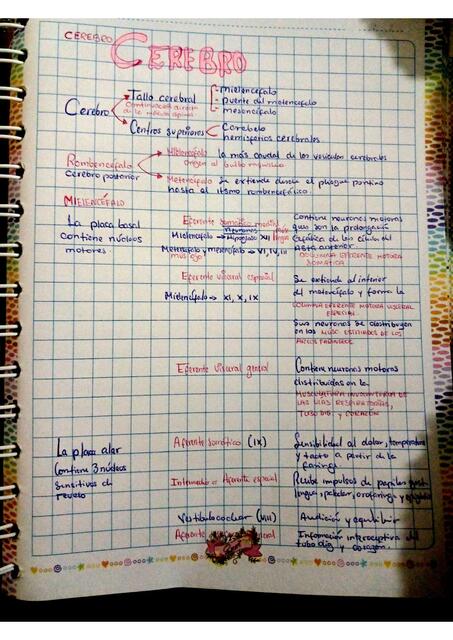 CEREBRO
CEREBRO
Cerebro
Tallo cerebral
Continuación directa
de la médula espinal
- mielencéfalo
- Puente del metencéfalo
- mesencéfalo
Centros superiores
Cerebelo
hemisferios cerebrales
Rombencéfalo
cerebro posterior
Mielencéfalo la más caudal de las vesículas cerebrales
Origen al bulbo raquídeo
Metencéfalo Se extiende desde el pliegue pontino
hasta el istmo rombencefálico.
MIELENCÉFALO
La placa basal
contiene núcleos
motores.
Eferente somático medial
Mielencéfalo → neuronas Hipogloso XII
lengua
Metencéfalo y mesencéfalo → VI, IV, III
musc ojo
Contiene neuronas motoras
que son la prolongación
cefálica de las células del
ASTA anterior.
COLUMNA EFERENTE MOTORA
SOMÁTICA
Eferente visceral especial
Mielencéfalo → XI, X, IX
Se extiende al interior
del metencéfalo y forma la
COLUMNA EFERENTE MOTORA VISCERAL
ESPECIAL
Sus neuronas se distribuyen
en los MUSC ESTRIADOS DE LOS
ARCOS FARÍNGEOS
Eferente visceral general
Contiene neuronas motoras
distribuidas en la
MUSCULATURA INVOLUNTARIA DE
LAS VÍAS RESPIRATORIAS,
TUBO DIG. y CORAZÓN
La placa alar
Contiene 3 núcleos
sensitivos de
relevo
Aferente somático (IX)
Sensibilidad al dolor, temperatura
y tacto a partir de la
faringe
Intermedio o Aferente especial
Recibe impulsos de papilas gust.
lengua, paladar, orofaringe y epiglotis
Vestibulococlear (VIII)
Audición y equilibrio
Aferente general
Información interoceptiva del
tubo dig y corazón.